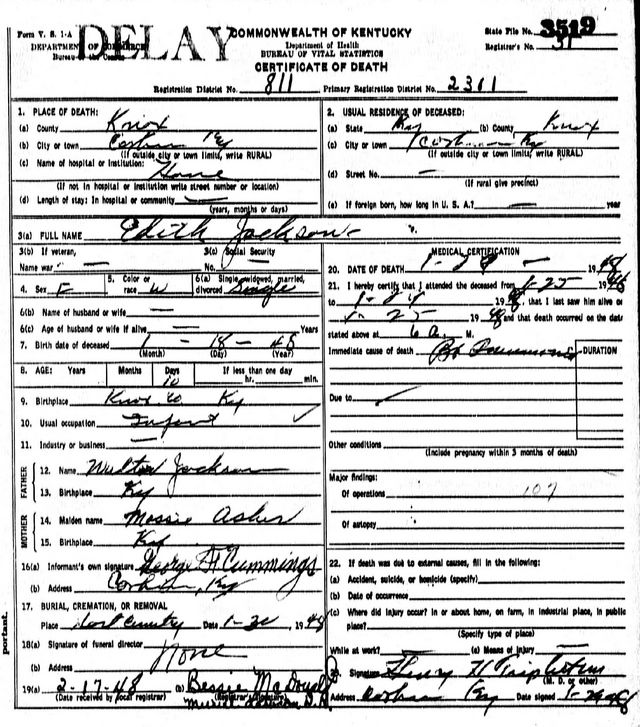 Form V. S. 1-A
DEPARTMENT OF COMMERCE
Bureau of the Census
DELAY
COMMONWEALTH OF KENTUCKY
Department of Health
BUREAU OF VITAL STATISTICS
CERTIFICATE OF DEATH
State File No. 3519
Registrar's No. 31
Registration District No. 811 Primary Registration District No. 2301
1. PLACE OF DEATH:
(a) County Knox
(b) City or town Corbin Ky
(If outside city or town limits, write RURAL)
(c) Name of hospital or institution:
Home
(If not in hospital or institution write street number or location)
(d) Length of stay: In hospital or community —
(years, months or days)
2. USUAL RESIDENCE OF DECEASED:
(a) State Ky (b) County Knox
(c) City or town Corbin Ky
(If outside city or town limits, write RURAL)
(d) Street No. —
(If rural give precinct)
(e) If foreign born, how long in U. S. A.? — year
3(a) FULL NAME Edith Jackson
3(b) If veteran,
Name war —
3(c) Social Security
No. —
4. Sex F
5. Color or race W
6(a) Single, widowed, married, divorced Single
6(b) Name of husband or wife —
6(c) Age of husband or wife if alive — Years
7. Birth date of deceased 1 - 18 - 48
(Month) (Day) (Year)
8. AGE: Years Months Days 10 If less than one day
hr. min.
9. Birthplace Knox Co Ky
10. Usual occupation Infant
11. Industry or business —
FATHER
12. Name Jackson
13. Birthplace Ky
MOTHER
14. Maiden name Mossie Asher
15. Birthplace Ky
16(a) Informant's own signature George H Cummings
(b) Address Corbin, Ky
17. BURIAL, CREMATION, OR REMOVAL
Place Date 1-30 1948
18(a) Signature of funeral director None
(b) Address
19(a) 2-17-48 (b) Bessie McDougal
(Date received by local registrar) (Registrar's signature)
MEDICAL CERTIFICATION
20. DATE OF DEATH 1- 1948
21. I hereby certify that I attended the deceased from 1-25 1948
to 1- 1948, that I last saw him alive on
1-25 1948 and that death occurred on the date
stated above at 6 a. M.
Immediate cause of death
DURATION
Due to
Other conditions
(Include pregnancy within 3 months of death)
Major findings:
Of operations 107
Of autopsy
22. If death was due to external causes, fill in the following:
(a) Accident, suicide, or homicide (specify)
(b) Date of occurrence
(c) Where did injury occur? in or about home, on farm, in industrial place, in public
place?
(Specify type of place)
While at work? — (e) Means of injury —
23. Signature Henry H
(M. D. or other)
Address Corbin Ky Date signed
portant.